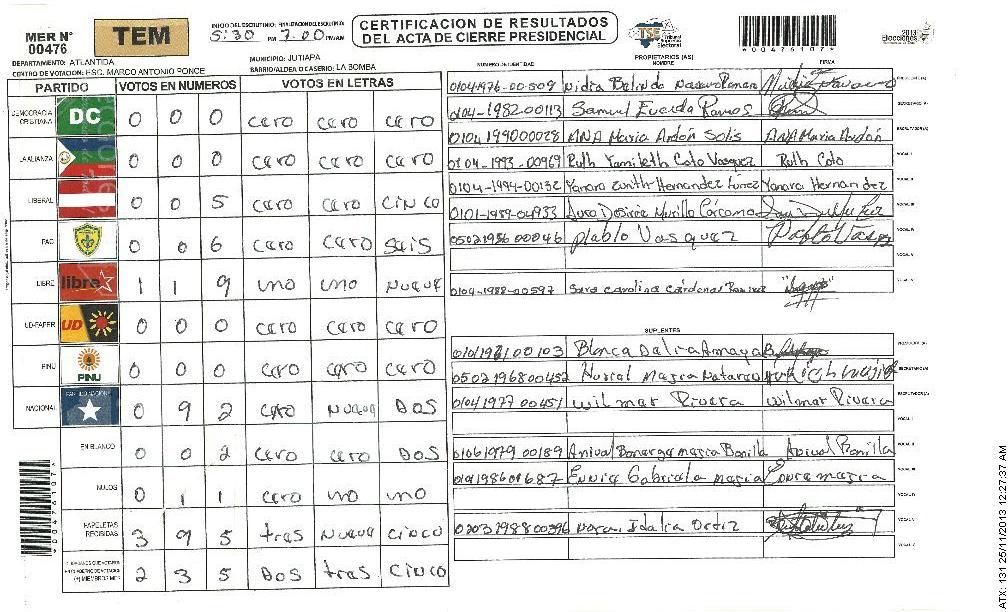 MER N° 00476
TEM
INICIO DEL ESCRUTINIO: 5:30 PM
FINALIZACION DEL ESCRUTINIO: 7:00 PM/AM
CERTIFICACION DE RESULTADOS
DEL ACTA DE CIERRE PRESIDENCIAL
TSE Tribunal Supremo Electoral
*00476107*
2013 Elecciones
DEPARTAMENTO: ATLANTIDA
MUNICIPIO: JUTIAPA
CENTRO DE VOTACION: ESC. MARCO ANTONIO PONCE
BARRIO/ALDEA O CASERIO: LA BOMBA
PARTIDO VOTOS EN NUMEROS VOTOS EN LETRAS
DEMOCRACIA CRISTIANA DC 0 0 0 cero cero cero
LA ALIANZA 0 0 0 cero cero cero
LIBERAL 0 0 5 cero cero cinco
PAC 0 0 6 cero cero seis
LIBRE libre 1 1 9 uno uno nueve
UD-FAPER UD 0 0 0 cero cero cero
PINU PINU 0 0 0 cero cero cero
NACIONAL PARTIDO NACIONAL 0 9 2 cero nueve dos
EN BLANCO 0 0 2 cero cero dos
NULOS 0 1 1 cero uno uno
PAPELETAS RECIBIDAS 3 9 5 tres nueve cinco
(+) MIEMBROS MER 2 3 5 dos tres cinco
NUMERO DE IDENTIDAD PROPIETARIOS (AS) NOMBRE FIRMA
01041976-00509 Nidia PRESIDENTE (A)
0104-1982-00113 Samuel Ramos SECRETARIO (A)
0104 199000028 ANA Maria Ardón Solis ANA Maria Ardón ESCRUTADOR (A)
0104-1993-00969 Ruth Yamileth Coto Vasquez Ruth Coto VOCAL I
0104-1994-00132 Yanara Hernandez Yanara Hernandez VOCAL II
0101-1989-04933 Desiree Murillo Cárcamo VOCAL III
0502 1956 00046 Pablo Vasquez Pablo VOCAL IV
0104-1988-00597 Sara Carolina Cárdenas Ramirez
SUPLENTES
Blanca Dalia Amaya PRESIDENTE (A)
0502196800452 Mejia SECRETARIO (A)
0104 1977 00451 Wilmar Rivera Wilmar Rivera ESCRUTADOR (A)
VOCAL I
01061979 00189 Anival Bonilla Anival Bonilla VOCAL II
Gabriela Mejia VOCAL III
VOCAL IV
Idalia Ortiz VOCAL V
*00476107*
ATX: 131 25/11/2013 12:27:37 AM